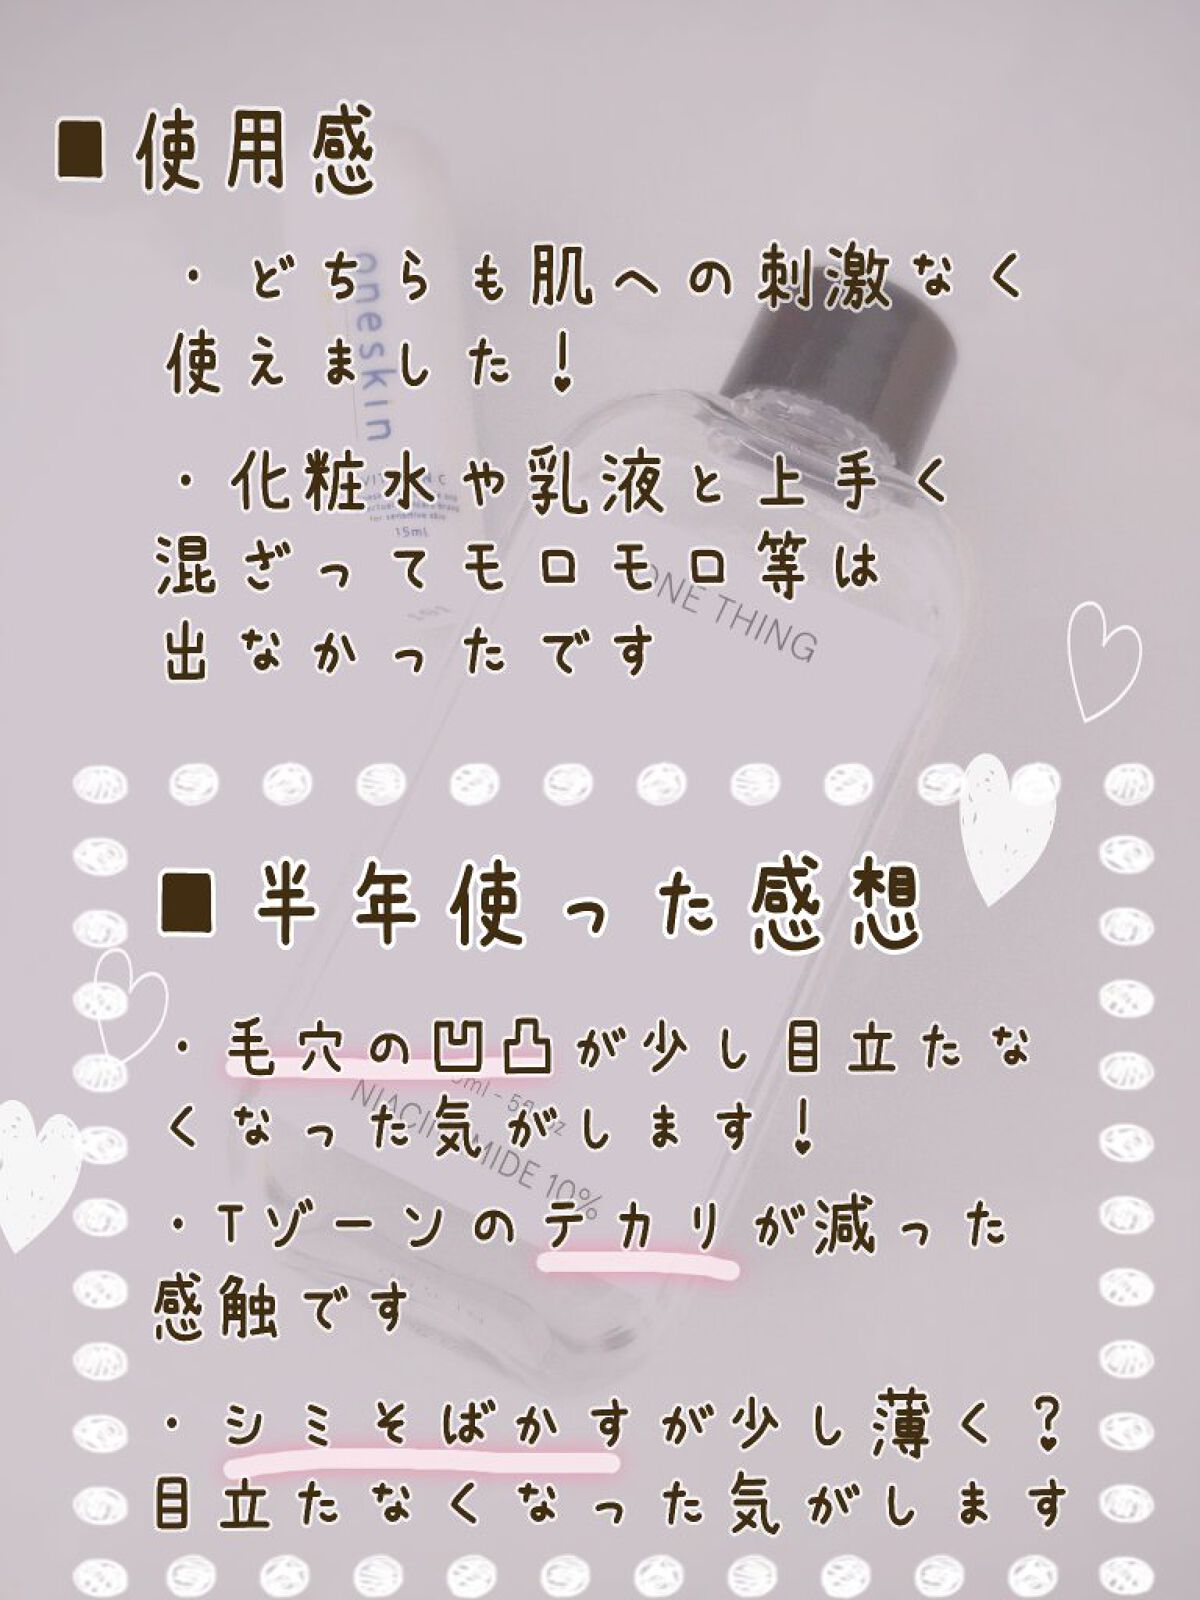 ■使用感
・どちらも肌への刺激なく
使えました!
・化粧水や乳液と上手く
混ざってモロモロ等は
出なかったです
■半年使った感想
・毛穴の凹凸が少し目立たな
くなった気がします!
・Tゾーンのテカリが減った
感触です
・シミそばかすが少し薄く?
目立たなくなった気がします
oneskin
for sensitive skin
15mL
ONE THING
NIACINAMIDE 10%